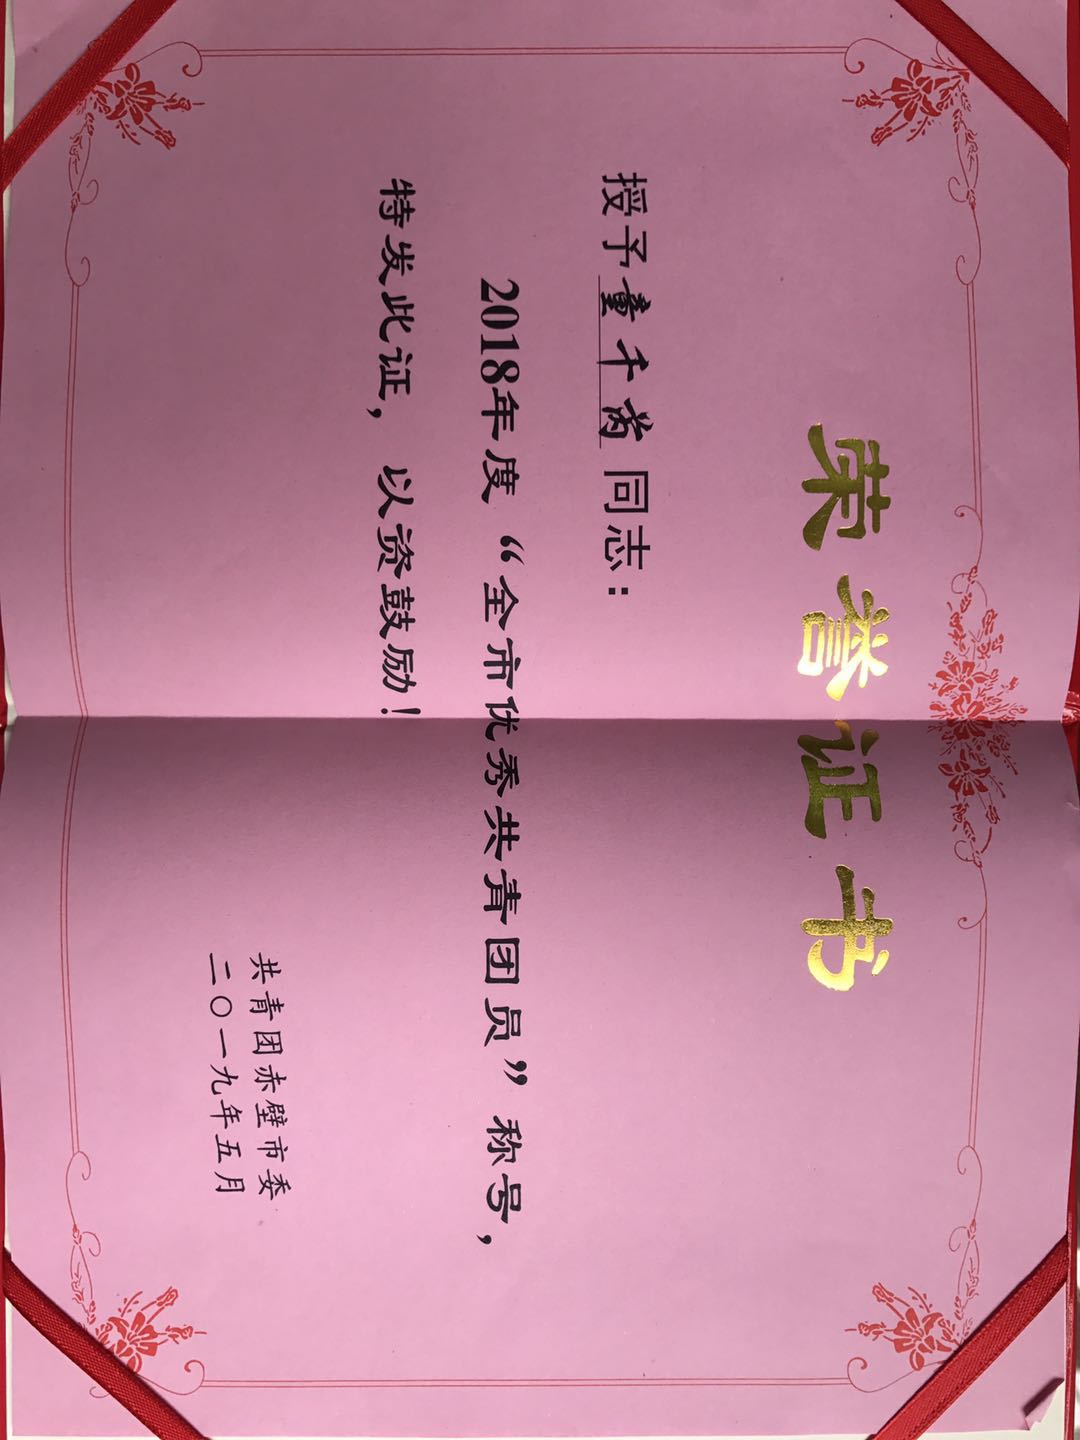 荣誉证书
授予童千芮同志：
2018年度“全市优秀共青团员”称号，
特发此证，以资鼓励！
共青团赤壁市委
二〇一九年五月